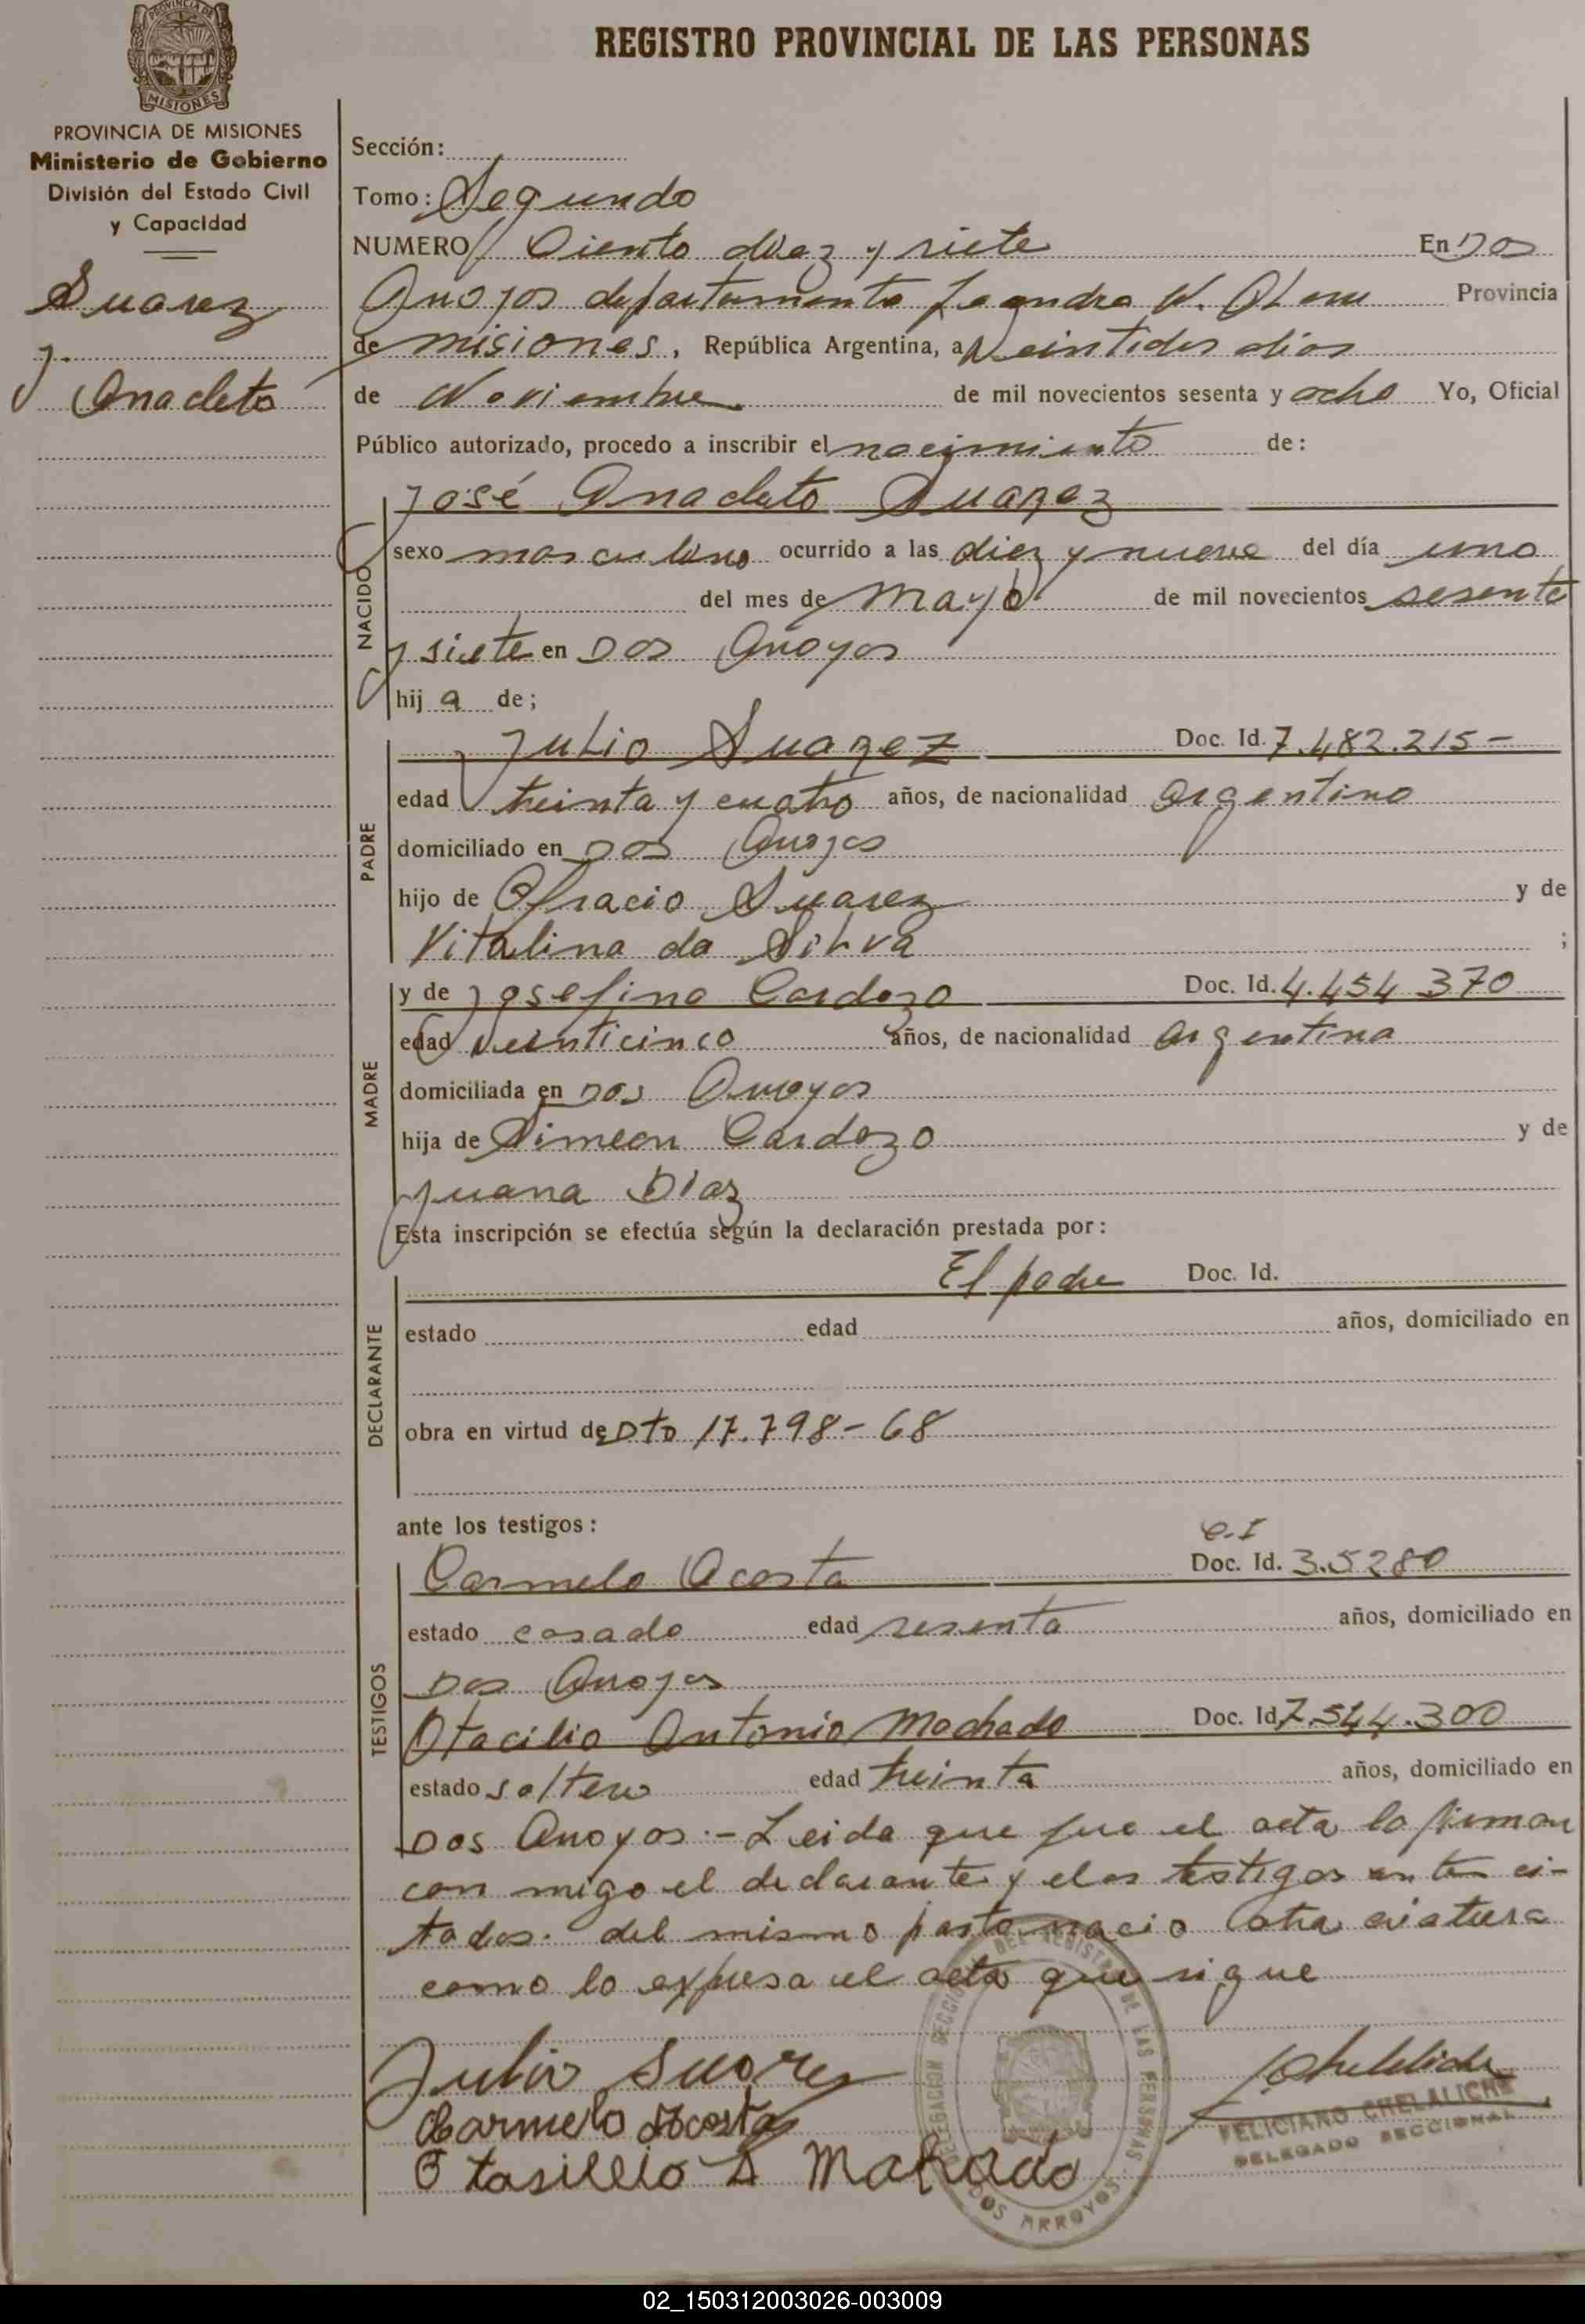 REGISTRO PROVINCIAL DE LAS PERSONAS
PROVINCIA DE
MISIONES
PROVINCIA DE MISIONES
Ministerio de Gobierno
División del Estado Civil
y Capacidad
Suarez
J.
Anacleto
Sección:
Tomo: Segundo
NUMERO Ciento diez y siete En Dos
Arroyos departamento Leandro N. Alem Provincia
de misiones, República Argentina, a Veintidos dias
de Noviembre de mil novecientos sesenta y ocho Yo, Oficial
Público autorizado, procedo a inscribir el nacimiento de:
NACIDO
José Anacleto Suarez
sexo masculino ocurrido a las diez y nueve del día uno
del mes de Mayo de mil novecientos sesenta
y siete en Dos Arroyos
hij a de;
PADRE
Julio Suarez Doc. Id. 7.482.215-
edad treinta y cuatro años, de nacionalidad argentino
domiciliado en Dos Arroyos
hijo de Ofracio Suarez y de
Vitalina da Silva ;
MADRE
y de Josefina Cardozo Doc. Id. 4.454 370
edad veinticinco años, de nacionalidad argentina
domiciliada en Dos Arroyos
hija de Simeon Cardozo y de
Juana Diaz
Esta inscripción se efectúa según la declaración prestada por:
DECLARANTE
El padre Doc. Id.
estado edad años, domiciliado en
obra en virtud de Dto 17.798-68
ante los testigos:
TESTIGOS
C.I
Carmelo Acosta Doc. Id. 3.5280
estado casado edad sesenta años, domiciliado en
Dos Arroyos
Otacilio Antonio Machado Doc. Id 7.544.300
estado soltero edad treinta años, domiciliado en
Dos Arroyos.- Leida que fue el acta la firman
con migo el declarante y los testigos antes ci-
tados. del mismo parto nacio otra criatura
como lo expresa el acta que sigue
Julio Suarez
Carmelo Acosta
Otasilio A Mahado
FELICIANO CHELALICHE
DELEGADO SECCIONAL
DELEGACION SECCIONAL DEL REGISTRO DE LAS PERSONAS
DOS ARROYOS
02_150312003026-003009